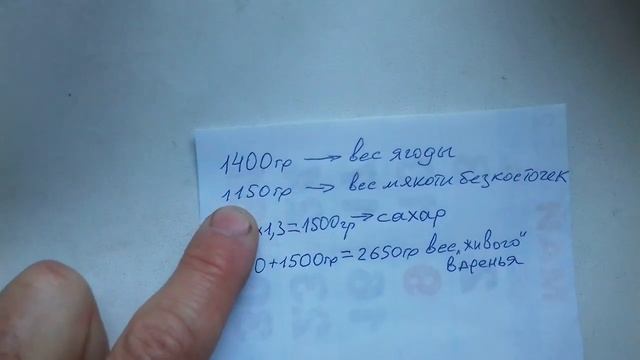 1400гр → вес ягоды
1150гр → вес мякоти без косточек
х1,3=1500гр → сахар
0+1500гр=2650гр вес „живого"
варенья